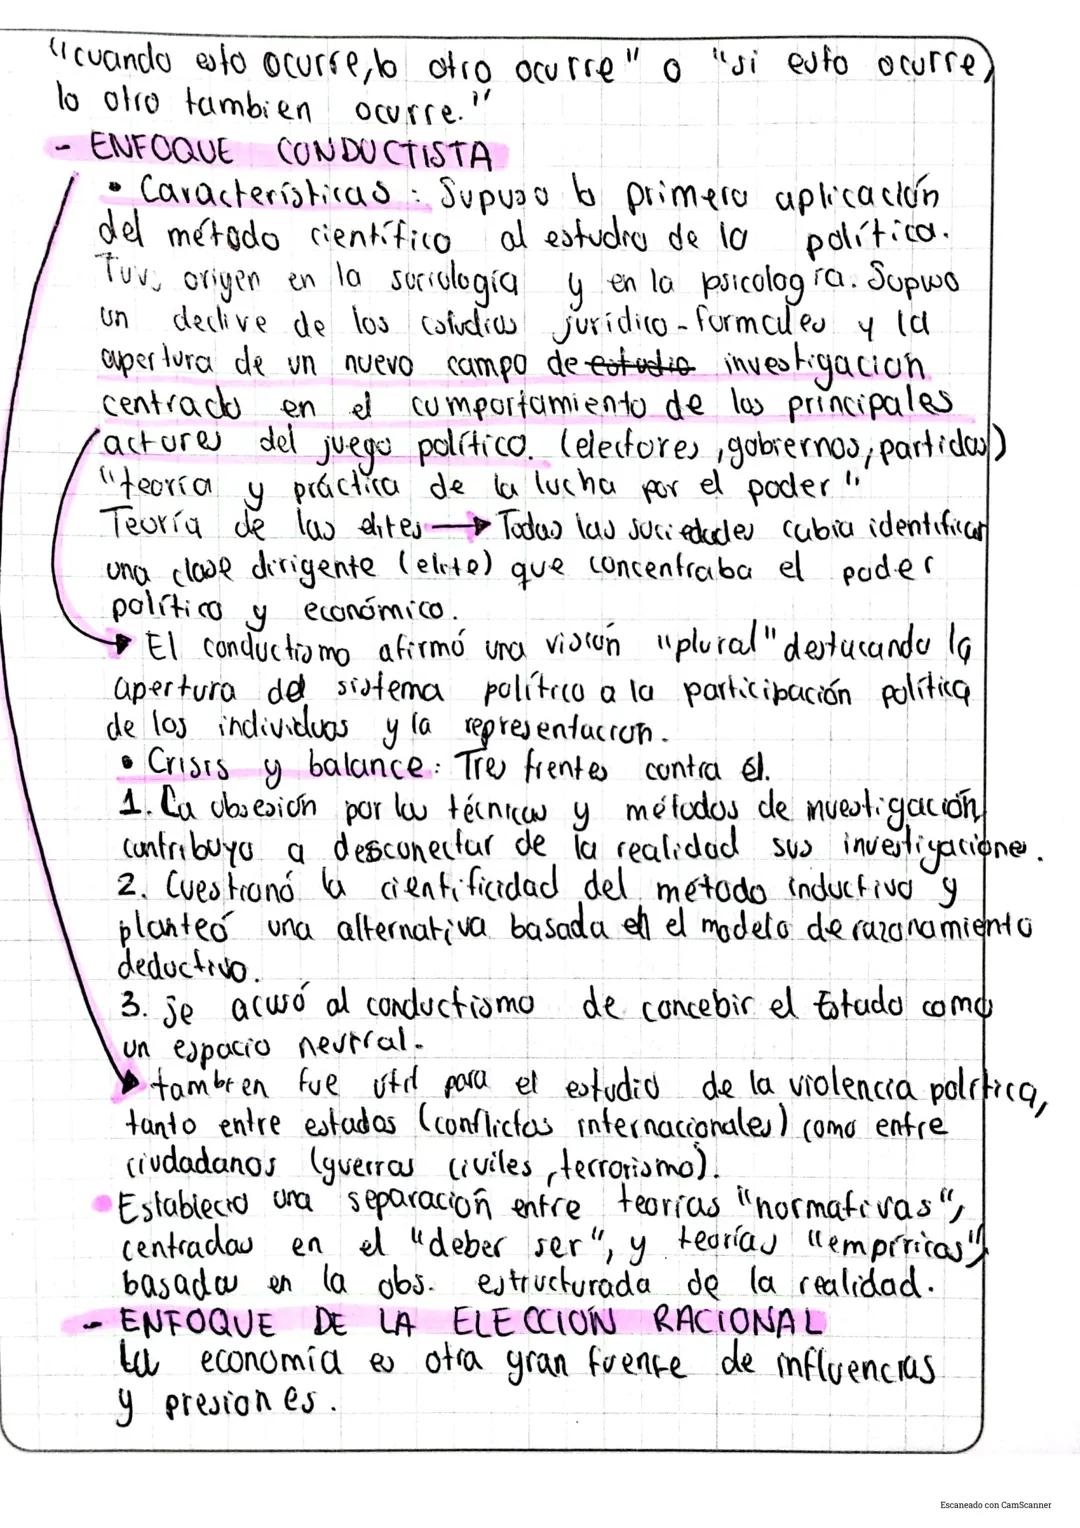 "cuando esto ocurre, lo otro ocurre" o "si esto ocurre,
lo otro tambien ocurre."
- ENFOQUE CONDUCTISTA
• Características: Supuso la primera aplicación
del método científico al estudio de la política.
Tuvo origen en la sociología y en la psicología. Supuso
un declive de los estudios jurídico-formales y la
apertura de un nuevo campo de estudio investigacion
centrado en el comportamiento de los principales
actores del juego político. (electores, gobiernos, partidos)
"teoría y práctica de la lucha por el poder".
Teoría de las elites → Todas las sociedades cabia identificar
una clase dirigente (elite) que concentraba el poder
político y económico.
El conductismo afirmó una visión "plural" destacando la
apertura del sistema político a la participación política
de los individuos y la representación.
• Crisis y balance: Tres frentes contra él.
1. La obsesión por las técnicas y métodos de investigación
contribuyo a desconectar de la realidad sus investigaciones.
2. Cuestionó la cientificidad del método inductivo y
planteó una alternativa basada en el modelo de razonamiento
deductivo.
3. Se acusó al conductismo de concebir el Estado como
un espacio neutral.
tambien fue útil para el estudio de la violencia política,
tanto entre estados (conflictos internacionales) como entre
ciudadanos (guerras civiles, terrorismo).
• Establecio una separación entre teorías "normativas",
centradas en el "deber ser", y teorías "empíricas",
basadas en la obs. estructurada de la realidad.
- ENFOQUE DE LA ELECCIÓN RACIONAL
La economía es otra gran fuente de influencias
y presiones.
Escaneado con CamScanner